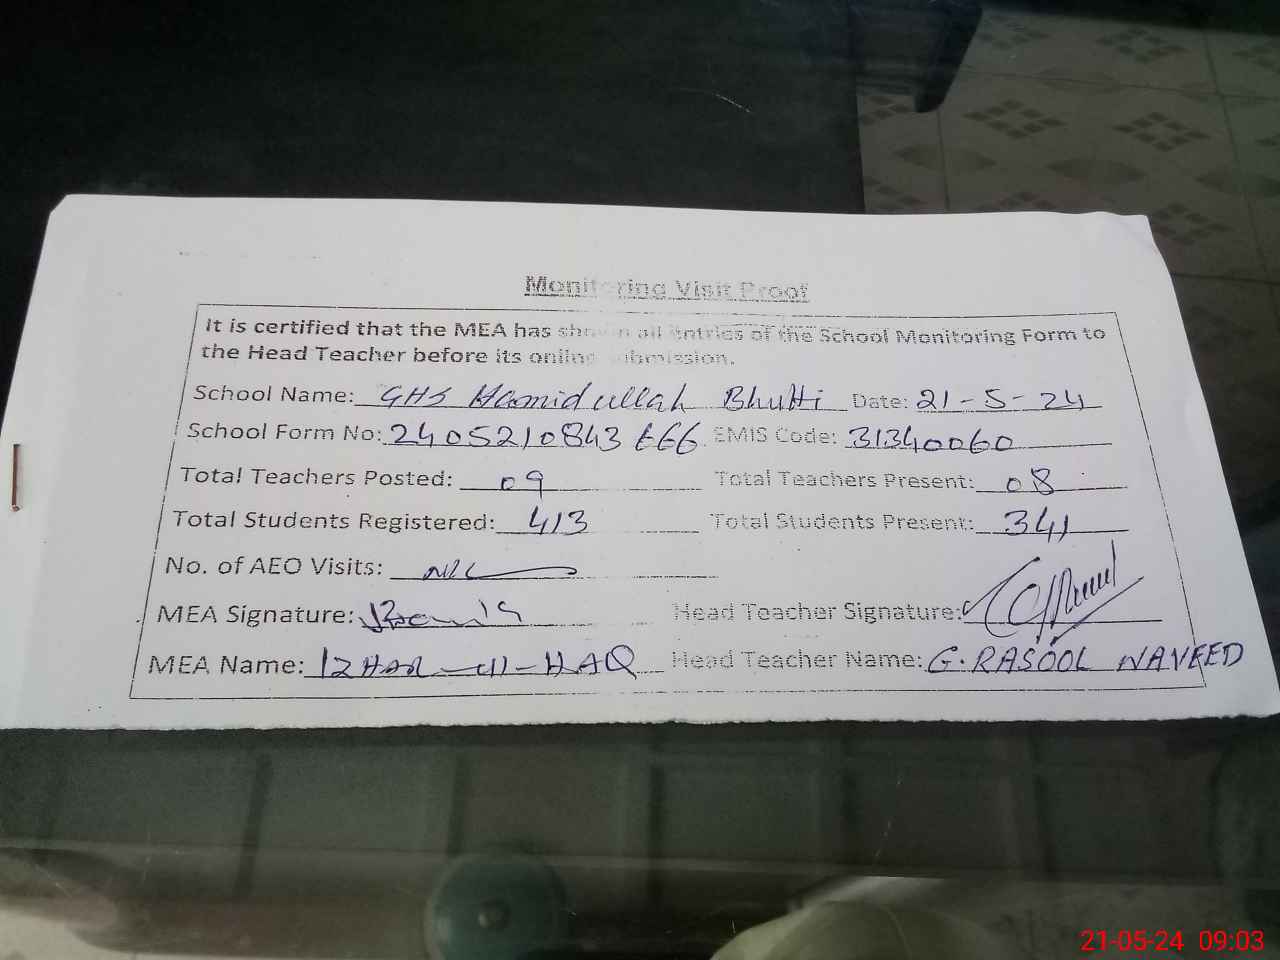 Monitoring Visit Proof
It is certified that the MEA has shown all entries of the School Monitoring Form to
the Head Teacher before its online submission.
School Name: GHS Hamidullah Bhutti Date: 21-5-24
School Form No: 2405210843666 EMIS Code: 31340060
Total Teachers Posted: 09 Total Teachers Present: 08
Total Students Registered: 413 Total Students Present: 341
No. of AEO Visits: NIL
MEA Signature: Head Teacher Signature:
MEA Name: IZHAR-UL-HAQ Head Teacher Name: G.RASOOL NAVEED
21-05-24 09:03